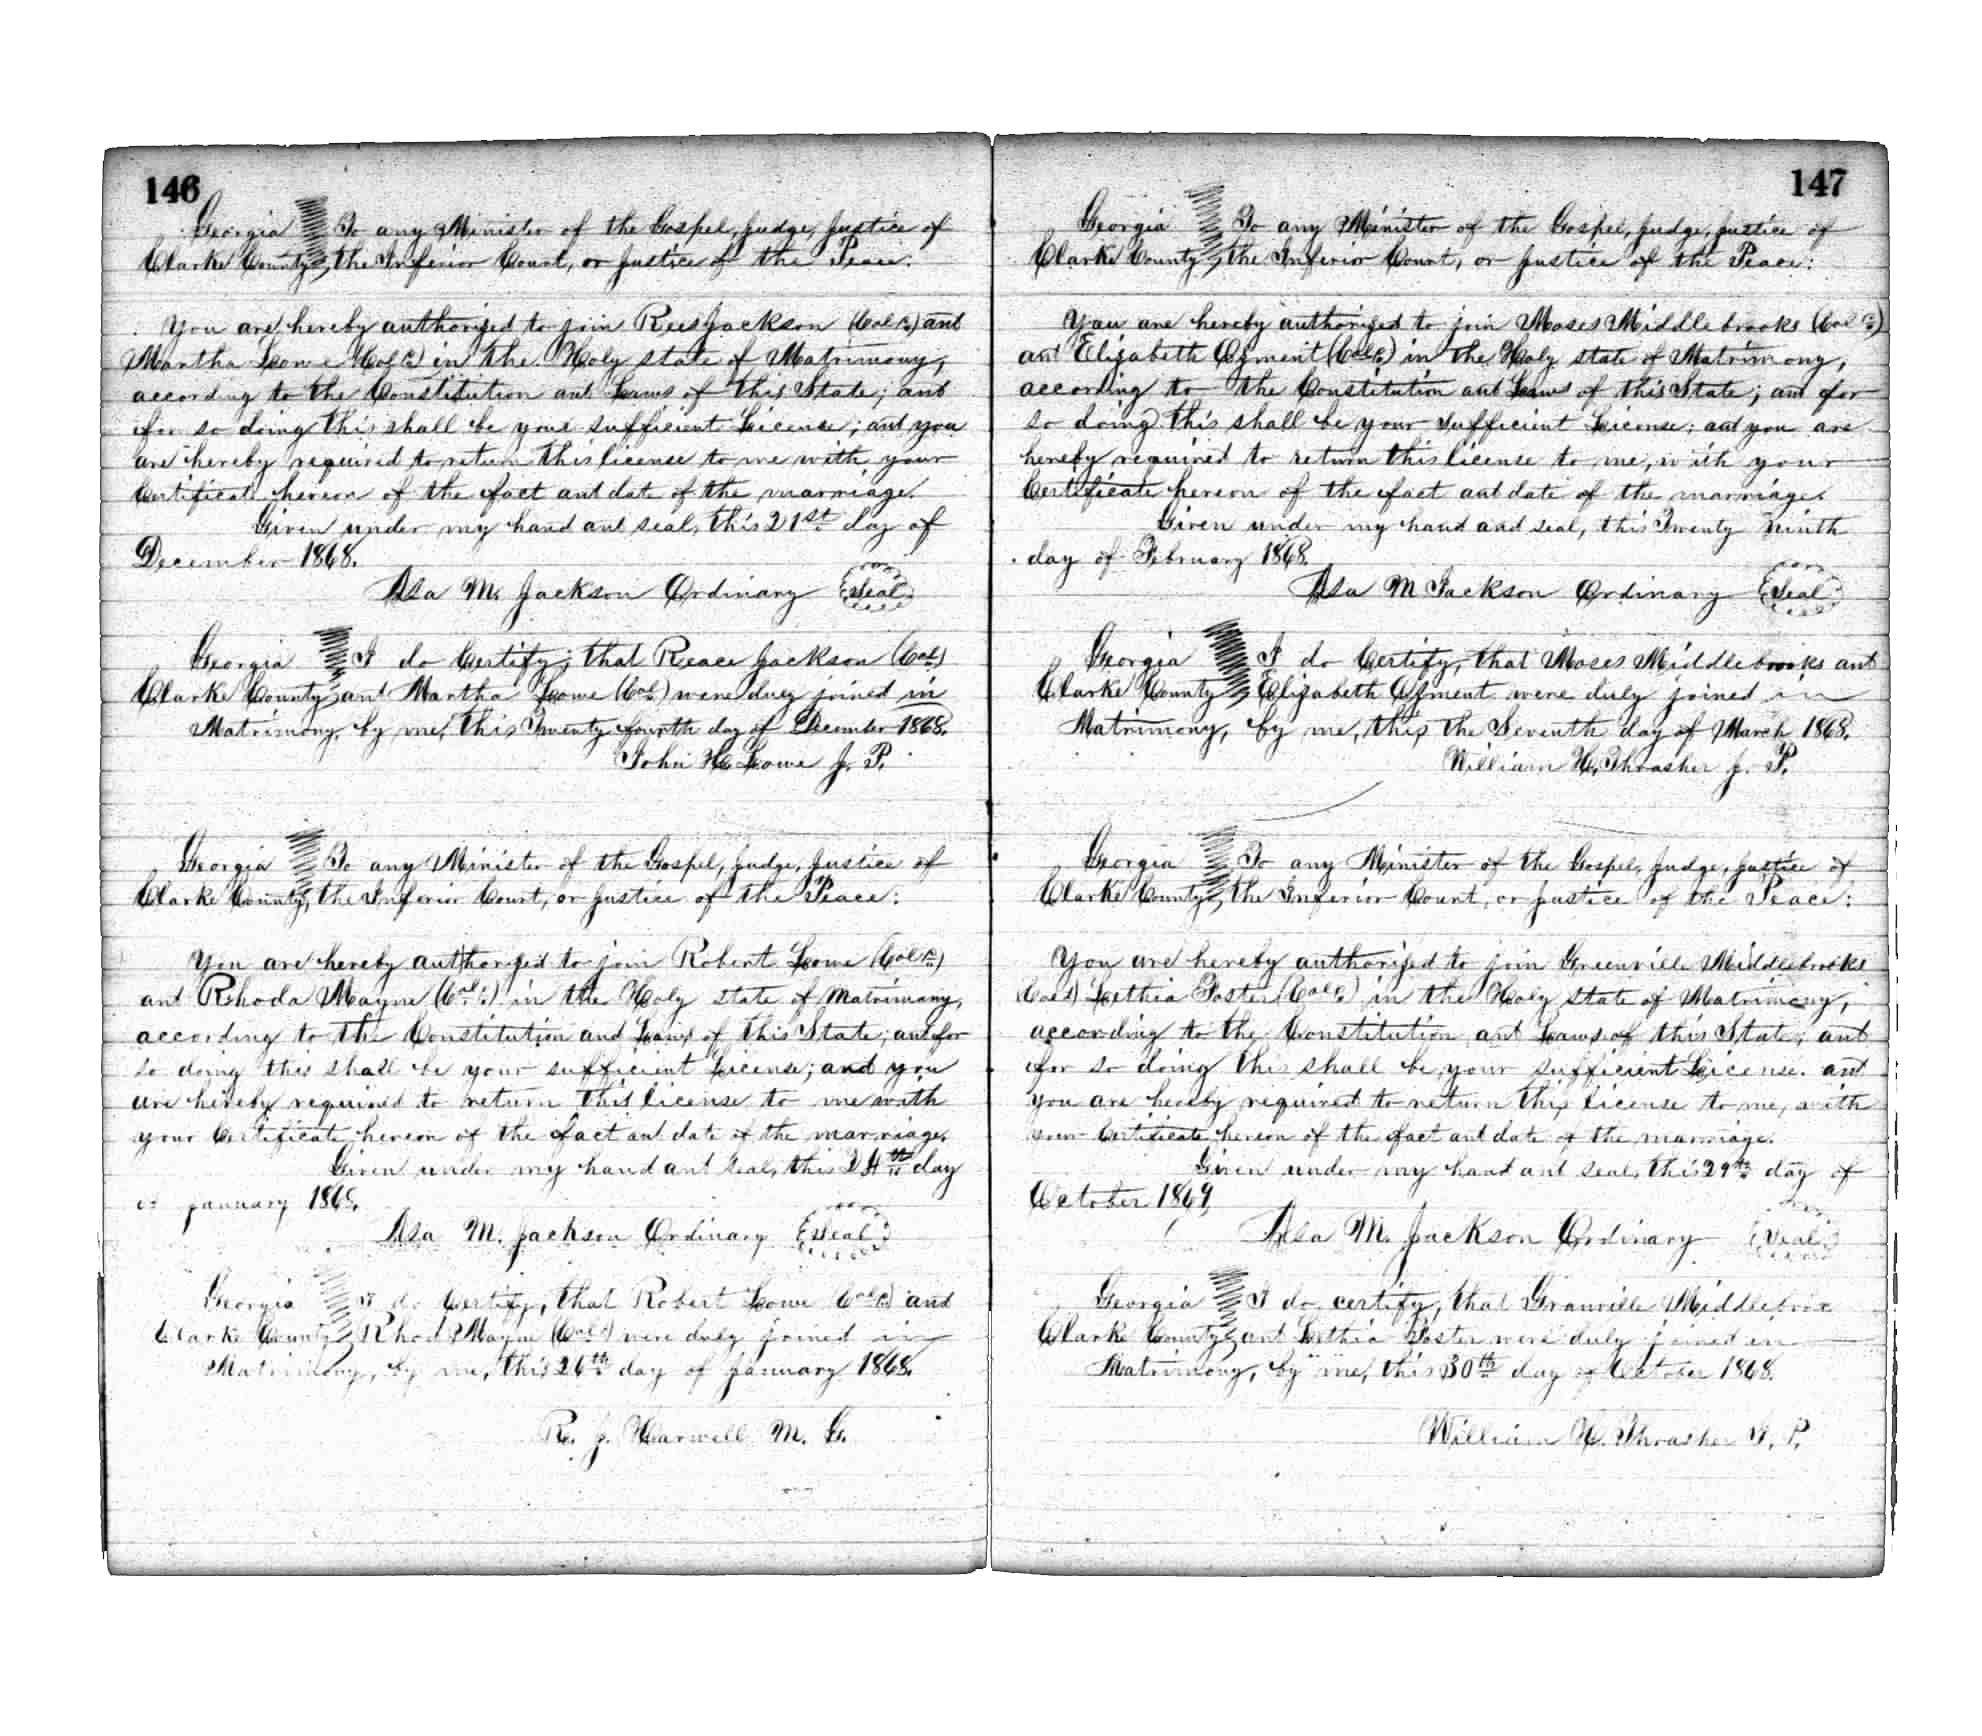 146
Georgia To any Minister of the Gospel, Judge, Justice of
Clarke County, the Inferior Court, or Justice of the Peace:
You are hereby authorized to join Rees Jackson (Cold) and
Martha Lowe (Cold) in the Holy state of Matrimony,
according to the Constitution and Laws of this State; and
for so doing this shall be your sufficient License; and you
are hereby required to return this license to me with your
Certificate hereon of the fact and date of the marriage.
Given under my hand and seal, this 21st day of
December 1868.
Asa M. Jackson Ordinary Seal
Georgia I do Certify; that Reace Jackson (Col)
Clarke County and Martha Lowe (Col) were duly joined in
Matrimony, by me, this Twenty fourth day of December 1868.
John H. Lowe J. P.
Georgia To any Minister of the Gospel, Judge, Justice of
Clarke County, the Inferior Court, or Justice of the Peace:
You are hereby authorized to join Robert Lowe (Cold)
and Rhoda Mayne (Cold) in the Holy state of Matrimony,
according to the Constitution and Laws of this State; and for
so doing this shall be your sufficient License; and you
are hereby required to return this license to me with
your Certificate hereon of the fact and date of the marriage.
Given under my hand and seal, this 24th day
of January 1868.
Asa M. Jackson Ordinary Seal
Georgia I do Certify, that Robert Lowe (Cold) and
Clarke County Rhod Mayne (Cold) were duly joined in
Matrimony, by me, this 26th day of January 1868.
R. J. Harwell M. G.
147
Georgia To any Minister of the Gospel, Judge, Justice of
Clarke County, the Inferior Court, or Justice of the Peace:
You are hereby authorized to join Moses Middlebrooks (Cold)
and Elizabeth Ozment (Cold) in the Holy state of Matrimony,
according to the Constitution and Laws of this State; and for
so doing this shall be your sufficient License; and you are
hereby required to return this license to me, with your
Certificate hereon of the fact and date of the marriage.
Given under my hand and seal, this Twenty Ninth
day of February 1868.
Asa M Jackson Ordinary Seal
Georgia I do Certify, that Moses Middlebrooks and
Clarke County Elizabeth Ozment were duly joined in
Matrimony, by me, this the Seventh day of March 1868.
William H. Thrasher J. P.
Georgia To any Minister of the Gospel, Judge, Justice of
Clarke County, the Inferior Court, or Justice of the Peace:
You are hereby authorized to join Greenville Middlebrooks
(Cold) Lethia Foster (Cold) in the Holy state of Matrimony,
according to the Constitution and Laws of this State; and
for so doing this shall be your sufficient License. and
you are hereby required to return this license to me, with
your Certificate hereon of the fact and date of the marriage.
Given under my hand and seal, this 29th day of
October 1869.
Asa M. Jackson Ordinary Seal
Georgia I do certify, that Granville Middlebrox
Clarke County, and Lethia Foster were duly joined in
Matrimony, by me, this 30th day of October 1868.
William H. Thrasher J. P.